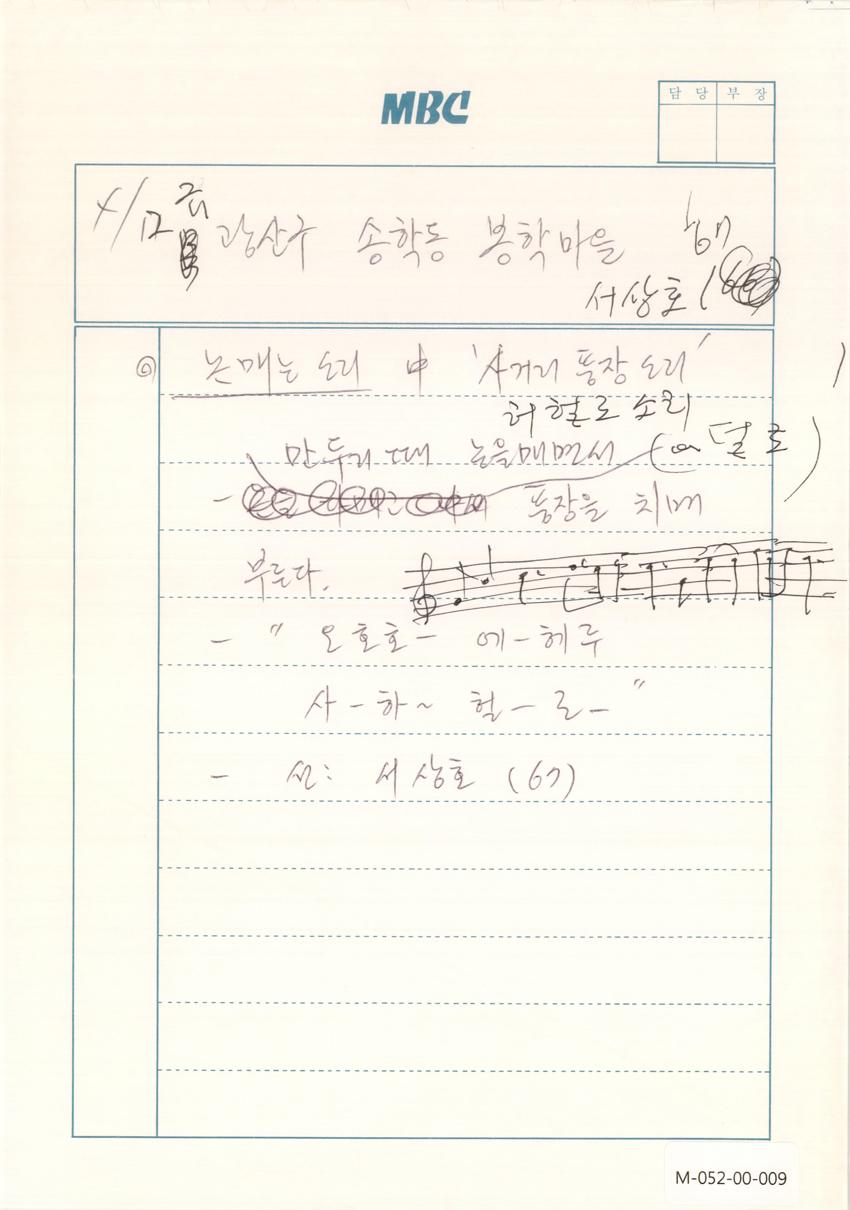 MBC
담당 부장
4/12 광산구 송학동 봉학마을
서상호
① 논매는 소리 中 '사거리 풍장 소리'
허헐로 소리
만두리 때 논을매면서
- 풍장을 치며
부른다.
- " 오호호- 에-헤루
사-하~ 헐-로-"
- 선: 서상호 (67)
M-052-00-009